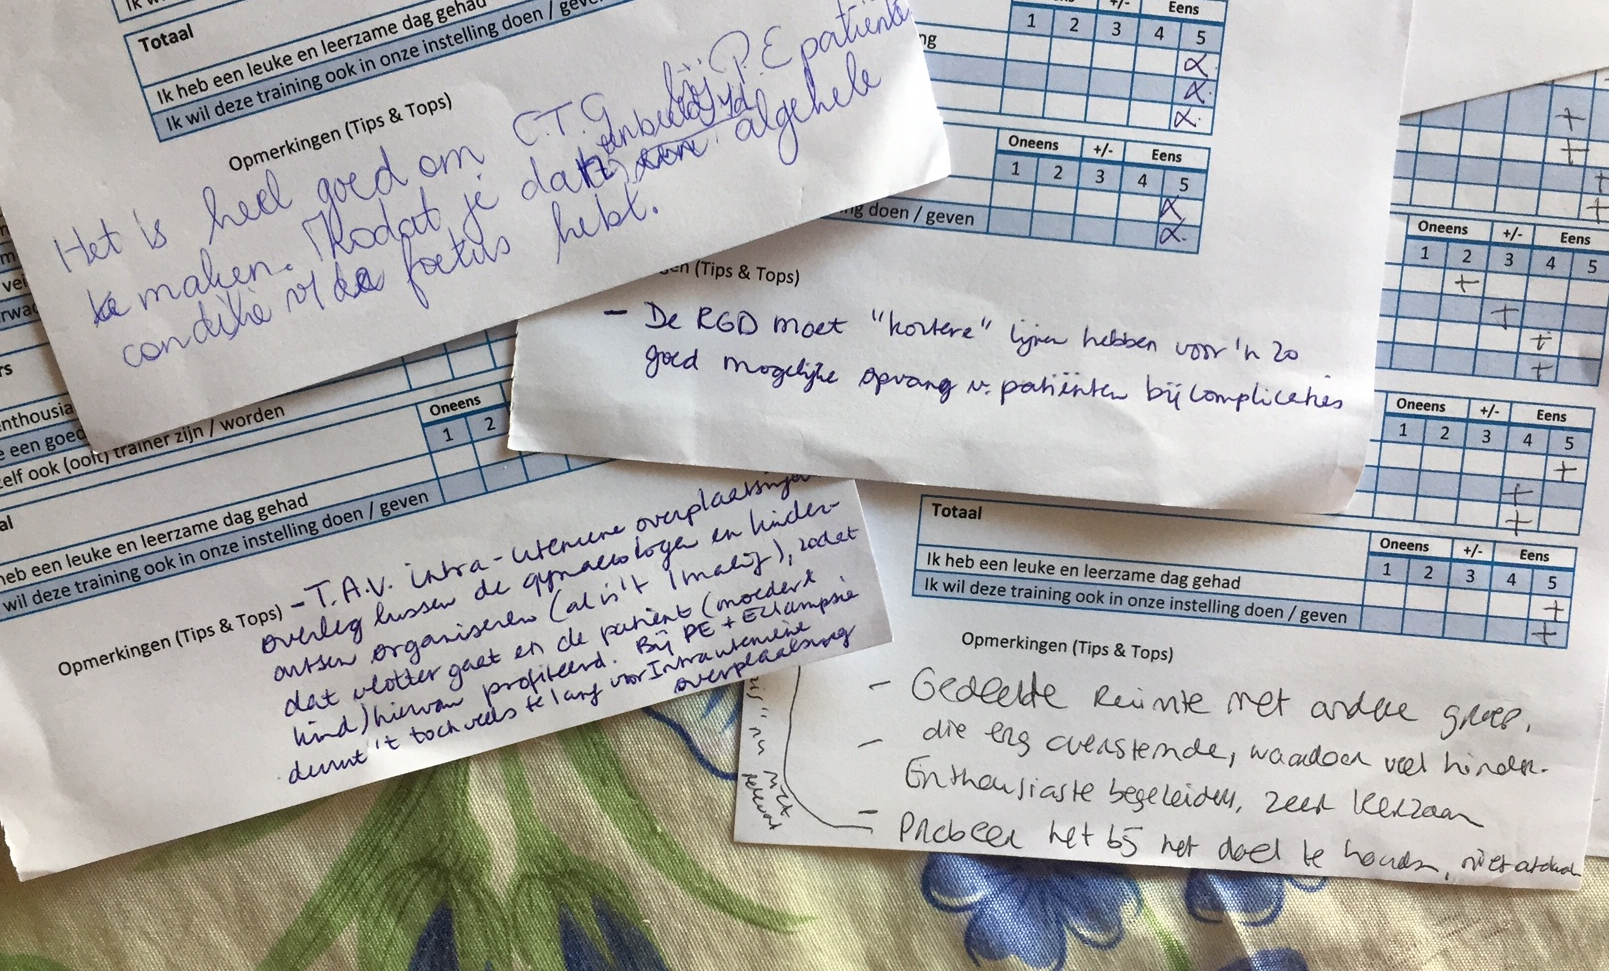 Totaal
Ik heb een leuke en leerzame dag gehad
Ik wil deze training ook in onze instelling doen / geven
Opmerkingen (Tips & Tops)
Het is heel goed om C.T.G bij P.E patiënte
te maken. Zodat je dan een beeld v/d algehele
conditie v/de foetus hebt.
Eens
1 2 3 4 5
Oneens +/- Eens
1 2 3 4 5
doen / geven
(Tips & Tops)
- De RGD moet "kortere" lijnen hebben voor 'n zo
goed mogelijke opvang v. patiënten bij complicaties
Oneens +/- Eens
1 2 3 4 5
Oneens +/- Eens
1 2 3 4 5
enthousia
e een goed
zelf ook (ooit) trainer zijn / worden
Oneens
1 2
heb een leuke en leerzame dag gehad
wil deze training ook in onze instelling doen / geven
Opmerkingen (Tips & Tops)
- T.A.V. intra-uteriene overplaatsingen
overleg tussen de gynaecologen en kinder-
artsen organiseren (al is 't 1 malig), zodat
dat vlotter gaat en de patiënt (moeder +
kind) hiervan profiteerd. Bij PE + Eclampsie
duurt 't toch veels te lang voor Intrauteriene
overplaatsing
Totaal
Oneens +/- Eens
1 2 3 4 5
Ik heb een leuke en leerzame dag gehad
Ik wil deze training ook in onze instelling doen / geven
Opmerkingen (Tips & Tops)
- Gedeelde Ruimte met andere groep,
die erg overstemde, waardoor veel hinder.
- Enthousiaste begeleiders, zeer leerzaam
- Probeer het bij het doel te houden, niet
nu niet relevant